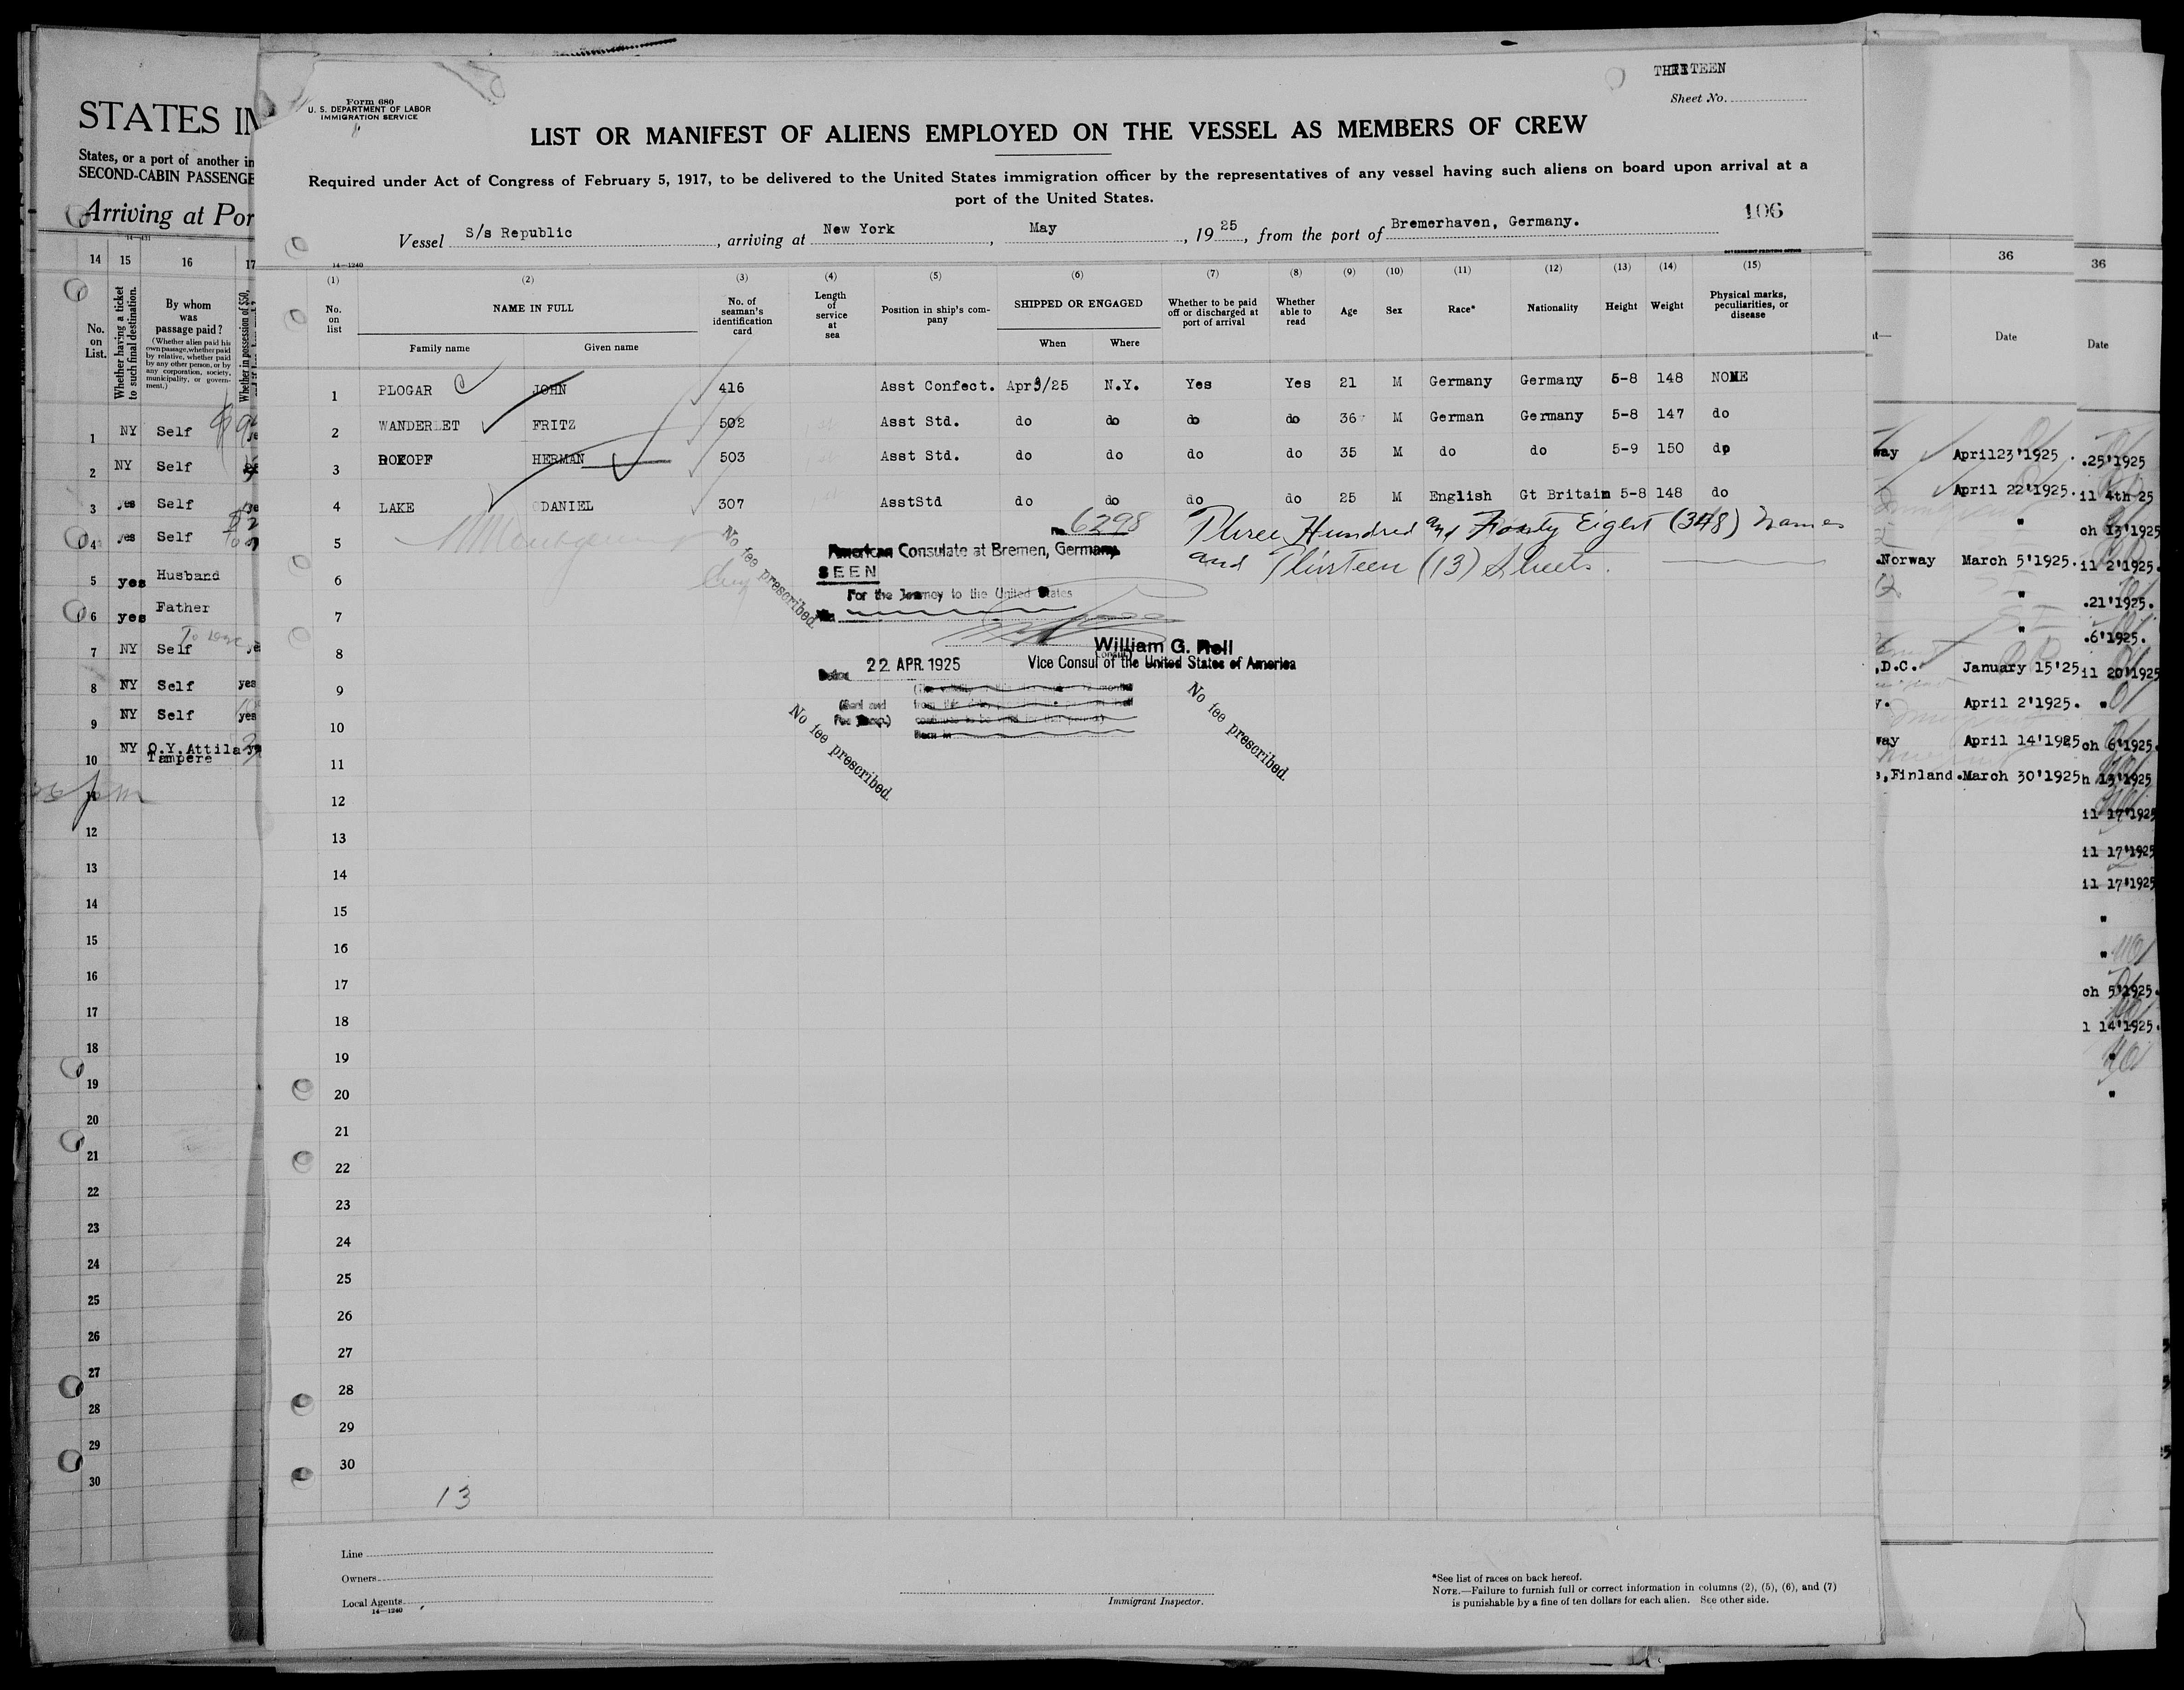 THIRTEEN
Sheet No.
Form 680
U. S. DEPARTMENT OF LABOR
IMMIGRATION SERVICE
LIST OR MANIFEST OF ALIENS EMPLOYED ON THE VESSEL AS MEMBERS OF CREW
Required under Act of Congress of February 5, 1917, to be delivered to the United States immigration officer by the representatives of any vessel having such aliens on board upon arrival at a
port of the United States.
106
Vessel S/s Republic, arriving at New York, May, 1925, from the port of Bremerhaven, Germany.
14—1240
GOVERNMENT PRINTING OFFICE
(1) (2) (3) (4) (5) (6) (7) (8) (9) (10) (11) (12) (13) (14) (15)
No. on list
NAME IN FULL
Family name
Given name
No. of seaman's identification card
Length of service at sea
Position in ship's company
SHIPPED OR ENGAGED
When
Where
Whether to be paid off or discharged at port of arrival
Whether able to read
Age
Sex
Race*
Nationality
Height
Weight
Physical marks, peculiarities, or disease
1 PLOGAR JOHN 416 Asst Confect. Apr3/25 N.Y. Yes Yes 21 M Germany Germany 5-8 148 NONE
2 WANDERLET FRITZ 502 Asst Std. do do do do 36 M German Germany 5-8 147 do
3 HERMAN 503 Asst Std. do do do do 35 M do do 5-9 150 do
4 LAKE DANIEL 307 AsstStd do do do do 25 M English Gt Britain 5-8 148 do
5
6
7
8
9
10
11
12
13
14
15
16
17
18
19
20
21
22
23
24
25
26
27
28
29
30
No. 6298
Three Hundred and Forty Eight (348) names
and Thirteen (13) Sheets.
American Consulate at Bremen, Germany
SEEN
For the Journey to the United States
William G. Roll
Vice Consul of the United States of America
22 APR. 1925
No fee prescribed.
No fee prescribed.
No fee prescribed.
13
Line
Owners
Local Agents
14—1240
Immigrant Inspector.
*See list of races on back hereof.
NOTE.—Failure to furnish full or correct information in columns (2), (5), (6), and (7)
is punishable by a fine of ten dollars for each alien. See other side.
STATES IM
States, or a port of another in
SECOND-CABIN PASSENGE
Arriving at Por
14 15 16 17
No. on List.
Whether having a ticket to such final destination.
By whom was passage paid?
(Whether alien paid his own passage, whether paid by relative, whether paid by any other person, or by any corporation, society, municipality, or government.)
Whether in possession of $50,
1 NY Self
2 NY Self
3 yes Self
4 yes Self
5 yes Husband
6 yes Father
7 NY Self
8 NY Self yes
9 NY Self yes
10 NY O.Y.Attila
Tampere
12
13
14
15
16
17
18
19
20
21
22
23
24
25
26
27
28
29
30
36
Date
way April23'1925
April 22'1925.
"
Norway March 5'1925.
"
"
,D.C. January 15'25
y. April 2'1925.
way April 14'1925
s,Finland.March 30'1925
36
Date
.25'1925
il 4th 25
ch 13'1925
il 2'1925.
.21'1925.
.6'1925.
il 20'1925
"
ch 6'1925.
h 13'1925
il 17'1925
il 17'1925
il 17'1925
"
"
ch 5'1925.
l 14'1925.
"
"